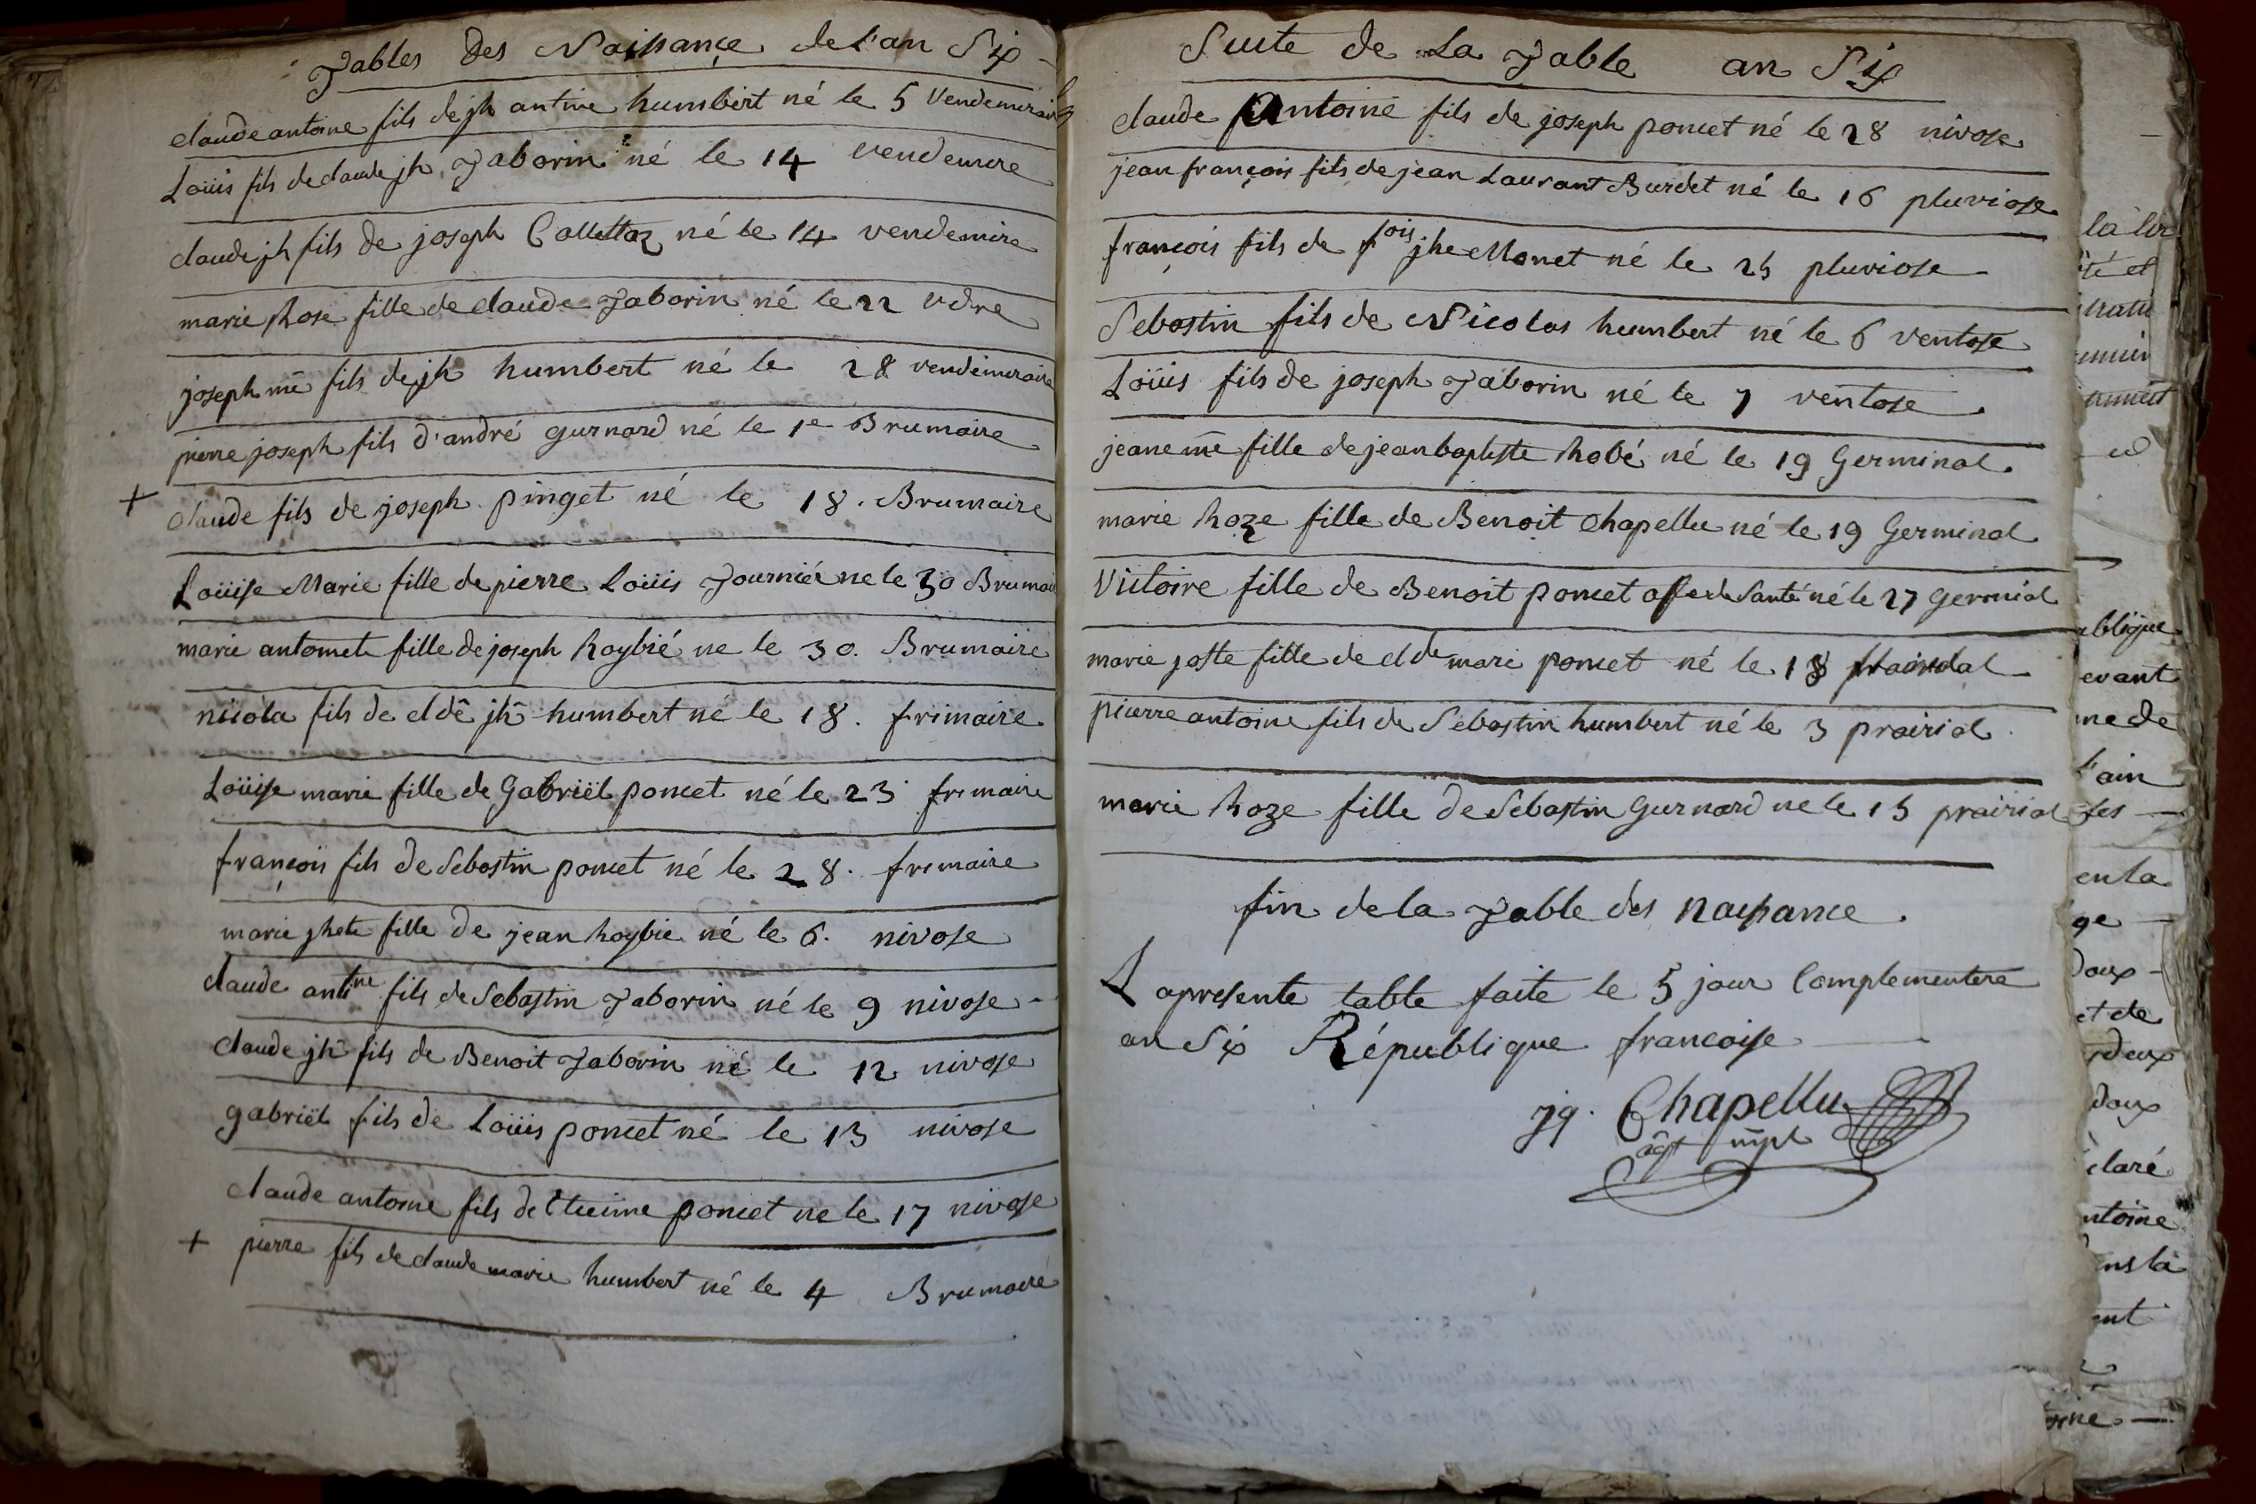 Tables Des Naissance de l'an Six
claude antoine fils de jh antine humbert né le 5 Vendemiraire
Loüis fils de claude jh Taborin né le 14 vendemire
claude jh fils de joseph Collettaz né le 14 vendemire
marie Rose fille de claude Taborin né le 22 vdre
joseph mie fils de jh humbert né le 28 vendemiraire
pierre joseph fils d'andré gurnard né le 1e Brumaire
+ claude fils de joseph pinget né le 18. Brumaire
Loüise Marie fille de pierre Loüis Journiée ne le 30 Brumai
marie antoinete fille de joseph Roybié ne le 30. Brumaire
nicola fils de clde jh humbert né le 18. frimaire
Loüise marie fille de Gabriël poncet né le 23 frimaire
françois fils de Sebastin poncet né le 28. frimaire
marie jhete fille de jean Roybie né le 6. nivose
claude antine fils de Sebastin Taborin né le 9 nivose
claude jh fils de Benoit Taborin né le 12 nivose
gabriël fils de Loüis poncet né le 13 nivose
claude antoine fils de Etieinne poncet ne le 17 nivose
+ pierre fils de claude marie humbert né le 4 Brumaire
Suite de La Table an Six
claude Antoine fils de joseph poncet né le 28 nivose
jean françois fils de jean Laurant Burdet né le 16 pluviose
françois fils de fois jhe Monet né le 25 pluviose
Sebastin fils de Nicolas humbert né le 6 ventose
Loüis fils de joseph Taborin né le 7 ventose
jeane mie fille de jean baptiste Robé né le 19 Germinal
marie Roze fille de Benoit Chapellu né le 19 Germinal
Victoire fille de Benoit poncet offe de Santé né le 27 germial
marie jostte fille de clde marie poncet né le 18
pierre antoine fils de Sebastin humbert né le 3 prairial
marie Roze fille de Sebastin Gurnard ne le 15 prairial
fin de la Table des naissance.
La presente table faite le 5 jour Complementere
an Six République francoise
jq. Chapellu
agt mpl
la lir
té et
abligue
evant
ne de
l'ain
les
en la
ge
Doux
et de
deux
doux
claré
ntoine
ns la
ent
oine